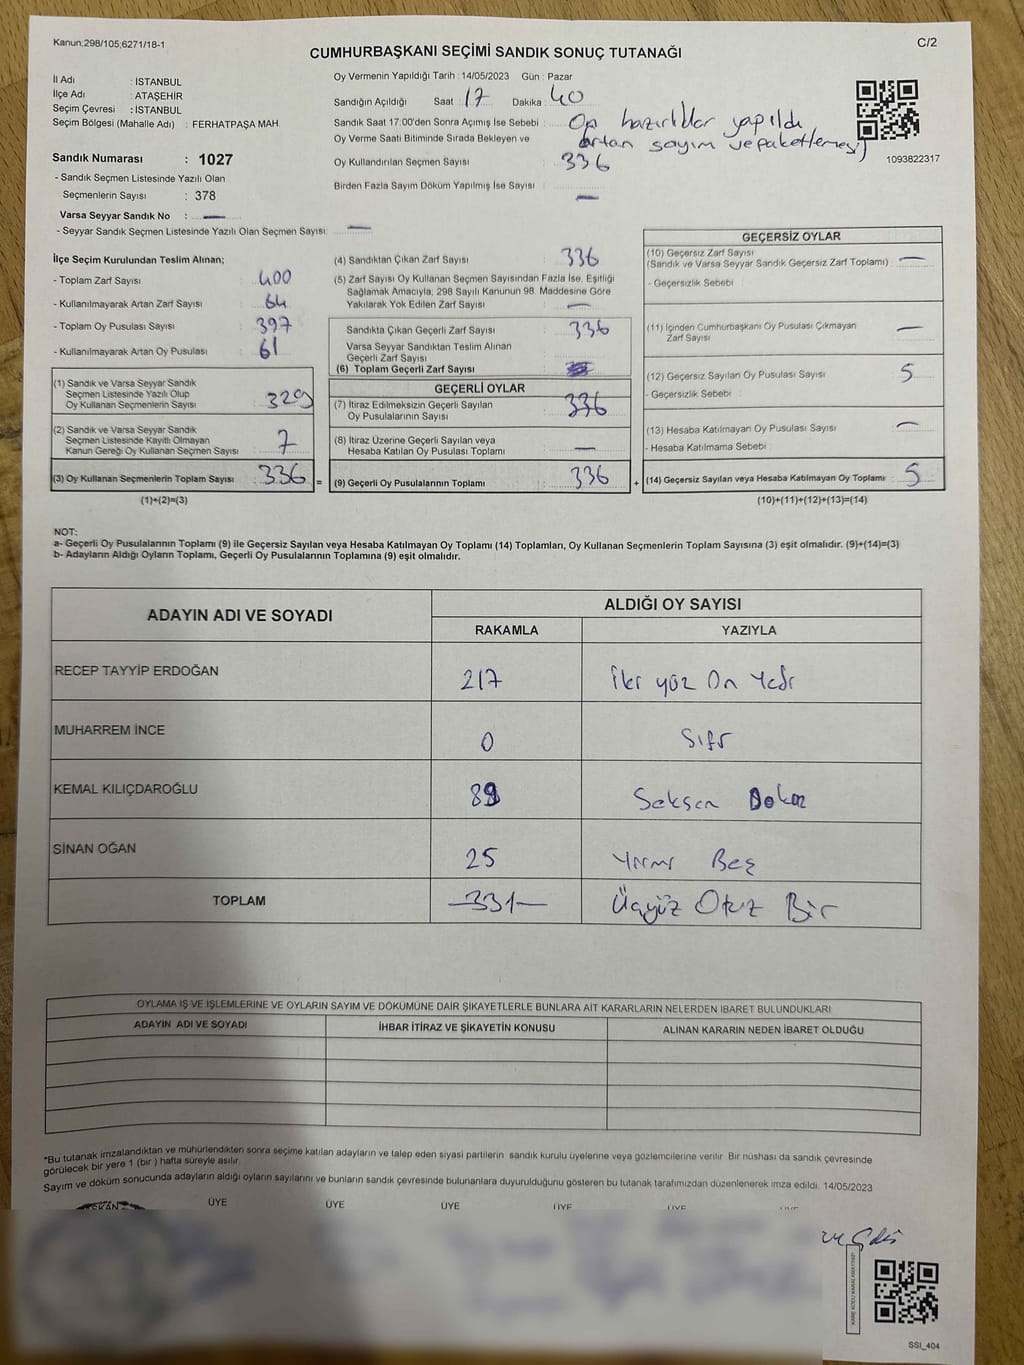 Kanun:298/105;6271/18-1
C/2
CUMHURBAŞKANI SEÇİMİ SANDIK SONUÇ TUTANAĞI
İl Adı : İSTANBUL
İlçe Adı : ATAŞEHİR
Seçim Çevresi : İSTANBUL
Seçim Bölgesi (Mahalle Adı) : FERHATPAŞA MAH.
Sandık Numarası : 1027
- Sandık Seçmen Listesinde Yazılı Olan
Seçmenlerin Sayısı : 378
Varsa Seyyar Sandık No : —
- Seyyar Sandık Seçmen Listesinde Yazılı Olan Seçmen Sayısı: —
Oy Vermenin Yapıldığı Tarih : 14/05/2023 Gün : Pazar
Sandığın Açıldığı Saat : 17 Dakika : 40
Sandık Saat 17:00'den Sonra Açımış İse Sebebi : Ön hazırlıklar yapıldı
Artan sayım ve paketlemesi
Oy Verme Saati Bitiminde Sırada Bekleyen ve
Oy Kullandırılan Seçmen Sayısı : 336
Birden Fazla Sayım Döküm Yapılmış İse Sayısı : —
1093822317
İlçe Seçim Kurulundan Teslim Alınan;
- Toplam Zarf Sayısı : 400
- Kullanılmayarak Artan Zarf Sayısı : 64
- Toplam Oy Pusulası Sayısı : 397
- Kullanılmayarak Artan Oy Pusulası : 61
(1) Sandık ve Varsa Seyyar Sandık
Seçmen Listesinde Yazılı Olup
Oy Kullanan Seçmenlerin Sayısı : 329
(2) Sandık ve Varsa Seyyar Sandık
Seçmen Listesinde Kayıtlı Olmayan
Kanun Gereği Oy Kullanan Seçmen Sayısı : 7
(3) Oy Kullanan Seçmenlerin Toplam Sayısı : 336
(1)+(2)=(3)
=
(4) Sandıktan Çıkan Zarf Sayısı : 336
(5) Zarf Sayısı Oy Kullanan Seçmen Sayısından Fazla İse, Eşitliği
Sağlamak Amacıyla; 298 Sayılı Kanunun 98. Maddesine Göre
Yakılarak Yok Edilen Zarf Sayısı : —
Sandıkta Çıkan Geçerli Zarf Sayısı : 336
Varsa Seyyar Sandıktan Teslim Alınan
Geçerli Zarf Sayısı :
(6) Toplam Geçerli Zarf Sayısı :
GEÇERLİ OYLAR
(7) İtiraz Edilmeksizin Geçerli Sayılan
Oy Pusulalarının Sayısı : 336
(8) İtiraz Üzerine Geçerli Sayılan veya
Hesaba Katılan Oy Pusulası Toplamı : —
(9) Geçerli Oy Pusulalarının Toplamı : 336
+
GEÇERSİZ OYLAR
(10) Geçersiz Zarf Sayısı
(Sandık ve Varsa Seyyar Sandık Geçersiz Zarf Toplamı) : —
- Geçersizlik Sebebi :
(11) İçinden Cumhurbaşkanı Oy Pusulası Çıkmayan
Zarf Sayısı : —
(12) Geçersiz Sayılan Oy Pusulası Sayısı : 5
- Geçersizlik Sebebi :
(13) Hesaba Katılmayan Oy Pusulası Sayısı : —
- Hesaba Katılmama Sebebi :
(14) Geçersiz Sayılan veya Hesaba Katılmayan Oy Toplamı : 5
(10)+(11)+(12)+(13)=(14)
NOT:
a- Geçerli Oy Pusulalarının Toplamı (9) ile Geçersiz Sayılan veya Hesaba Katılmayan Oy Toplamı (14) Toplamları, Oy Kullanan Seçmenlerin Toplam Sayısına (3) eşit olmalıdır. (9)+(14)=(3)
b- Adayların Aldığı Oyların Toplamı, Geçerli Oy Pusulalarının Toplamına (9) eşit olmalıdır.
ADAYIN ADI VE SOYADI
ALDIĞI OY SAYISI
RAKAMLA YAZIYLA
RECEP TAYYİP ERDOĞAN 217 İki yüz On Yedi
MUHARREM İNCE 0 Sıfır
KEMAL KILIÇDAROĞLU 89 Seksen Dokuz
SİNAN OĞAN 25 Yirmi Beş
TOPLAM —331— Üçyüz Otuz Bir
OYLAMA İŞ VE İŞLEMLERİNE VE OYLARIN SAYIM VE DÖKÜMÜNE DAİR ŞİKAYETLERLE BUNLARA AİT KARARLARIN NELERDEN İBARET BULUNDUKLARI
ADAYIN ADI VE SOYADI İHBAR İTİRAZ VE ŞİKAYETİN KONUSU ALINAN KARARIN NEDEN İBARET OLDUĞU
*Bu tutanak imzalandıktan ve mühürlendikten sonra seçime katılan adayların ve talep eden siyasi partilerin sandık kurulu üyelerine veya gözlemcilerine verilir. Bir nüshası da sandık çevresinde
görülecek bir yere 1 (bir ) hafta süreyle asılır.
Sayım ve döküm sonucunda adayların aldığı oyların sayılarını ve bunların sandık çevresinde bulunanlara duyurulduğunu gösteren bu tutanak tarafımızdan düzenlenerek imza edildi. 14/05/2023
ÜYE ÜYE ÜYE ÜYE ÜYE ÜYE
SSI_404